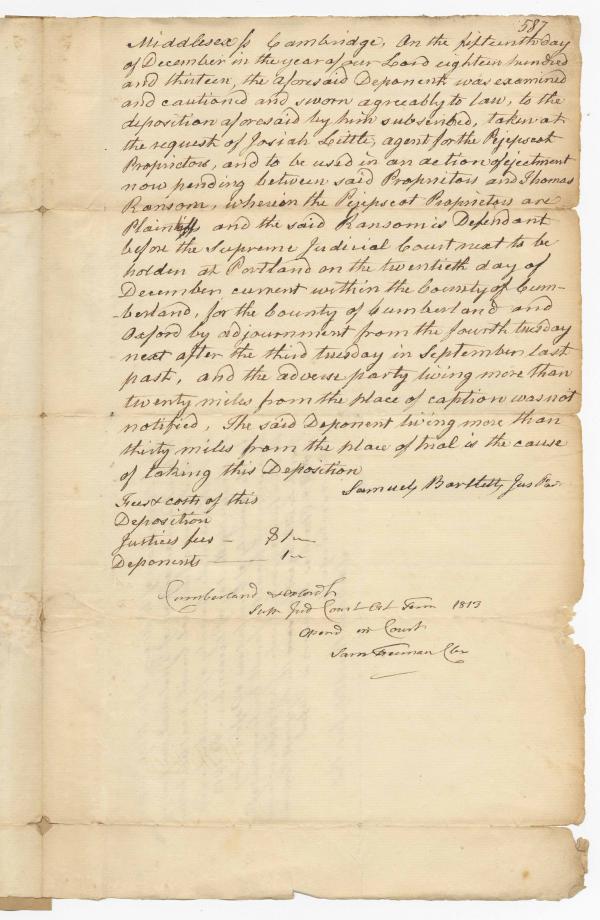 587
Middlesex ss Cambridge, On the fifteenth day
of December in the year of our Lord eighteen hundred
and thirteen, the aforesaid Deponent was examined
and cautioned and sworn agreeably to law, to the
deposition aforesaid by him subscribed, taken at
the request of Josiah Little, agent for the Pejepscot
Proprietors, and to be used in an action of ejectment
now pending between said Proprietors and Thomas
Ransom, wherein the Pejepscot Proprietors are
Plaintiffs and the said Ransom is Defendant
before the Supreme Judicial Court next to be
holden at Portland on the twentieth day of
December current within the County of Cum-
-berland, for the County of Cumberland and
Oxford by adjournment from the fourth tuesday
next after the third tuesday in September last
past, and the adverse party living more than
twenty miles from the place of caption was not
notified, The said Deponent living more than
thirty miles from the place of trial is the cause
of taking this Deposition
Samuel Bartlett, Jus Pac
Fees & costs of this
Deposition
Justices fees — $1
Deponents —— 1
Cumberland & Oxford ss
Sup Jud Court Oct Term 1813
Opend in Court
Sam Freeman Cler